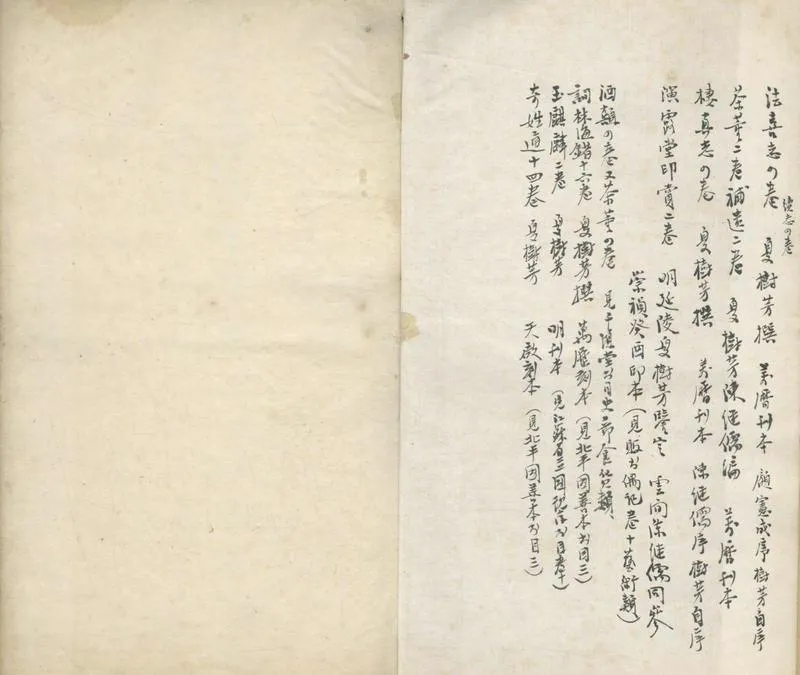 法喜志四卷 夏樹芳撰 萬曆刊本 顧憲成序樹芳自序
續志四卷
茶董二卷補遺二卷 夏樹芳陳繼儒編 萬曆刊本
棲真志四卷 夏樹芳撰 萬曆刊本 陳繼儒序樹芳自序
演露堂印賞二卷 明延陵夏樹芳鑒定 雲間陳繼儒同參
崇禎癸酉印本(見販书偶記卷十藝術類)
酒顛四卷又茶董四卷 見千頃堂书目史部食貨類
詞林海錯十六卷 夏樹芳撰 萬曆刻本(見北平圖善本书目三)
玉麒麟二卷 夏樹芳 明刊本(見江蘇省立圖书目卷十)
奇姓通十四卷 夏樹芳 天啟刻本(見北平圖善本书目三)